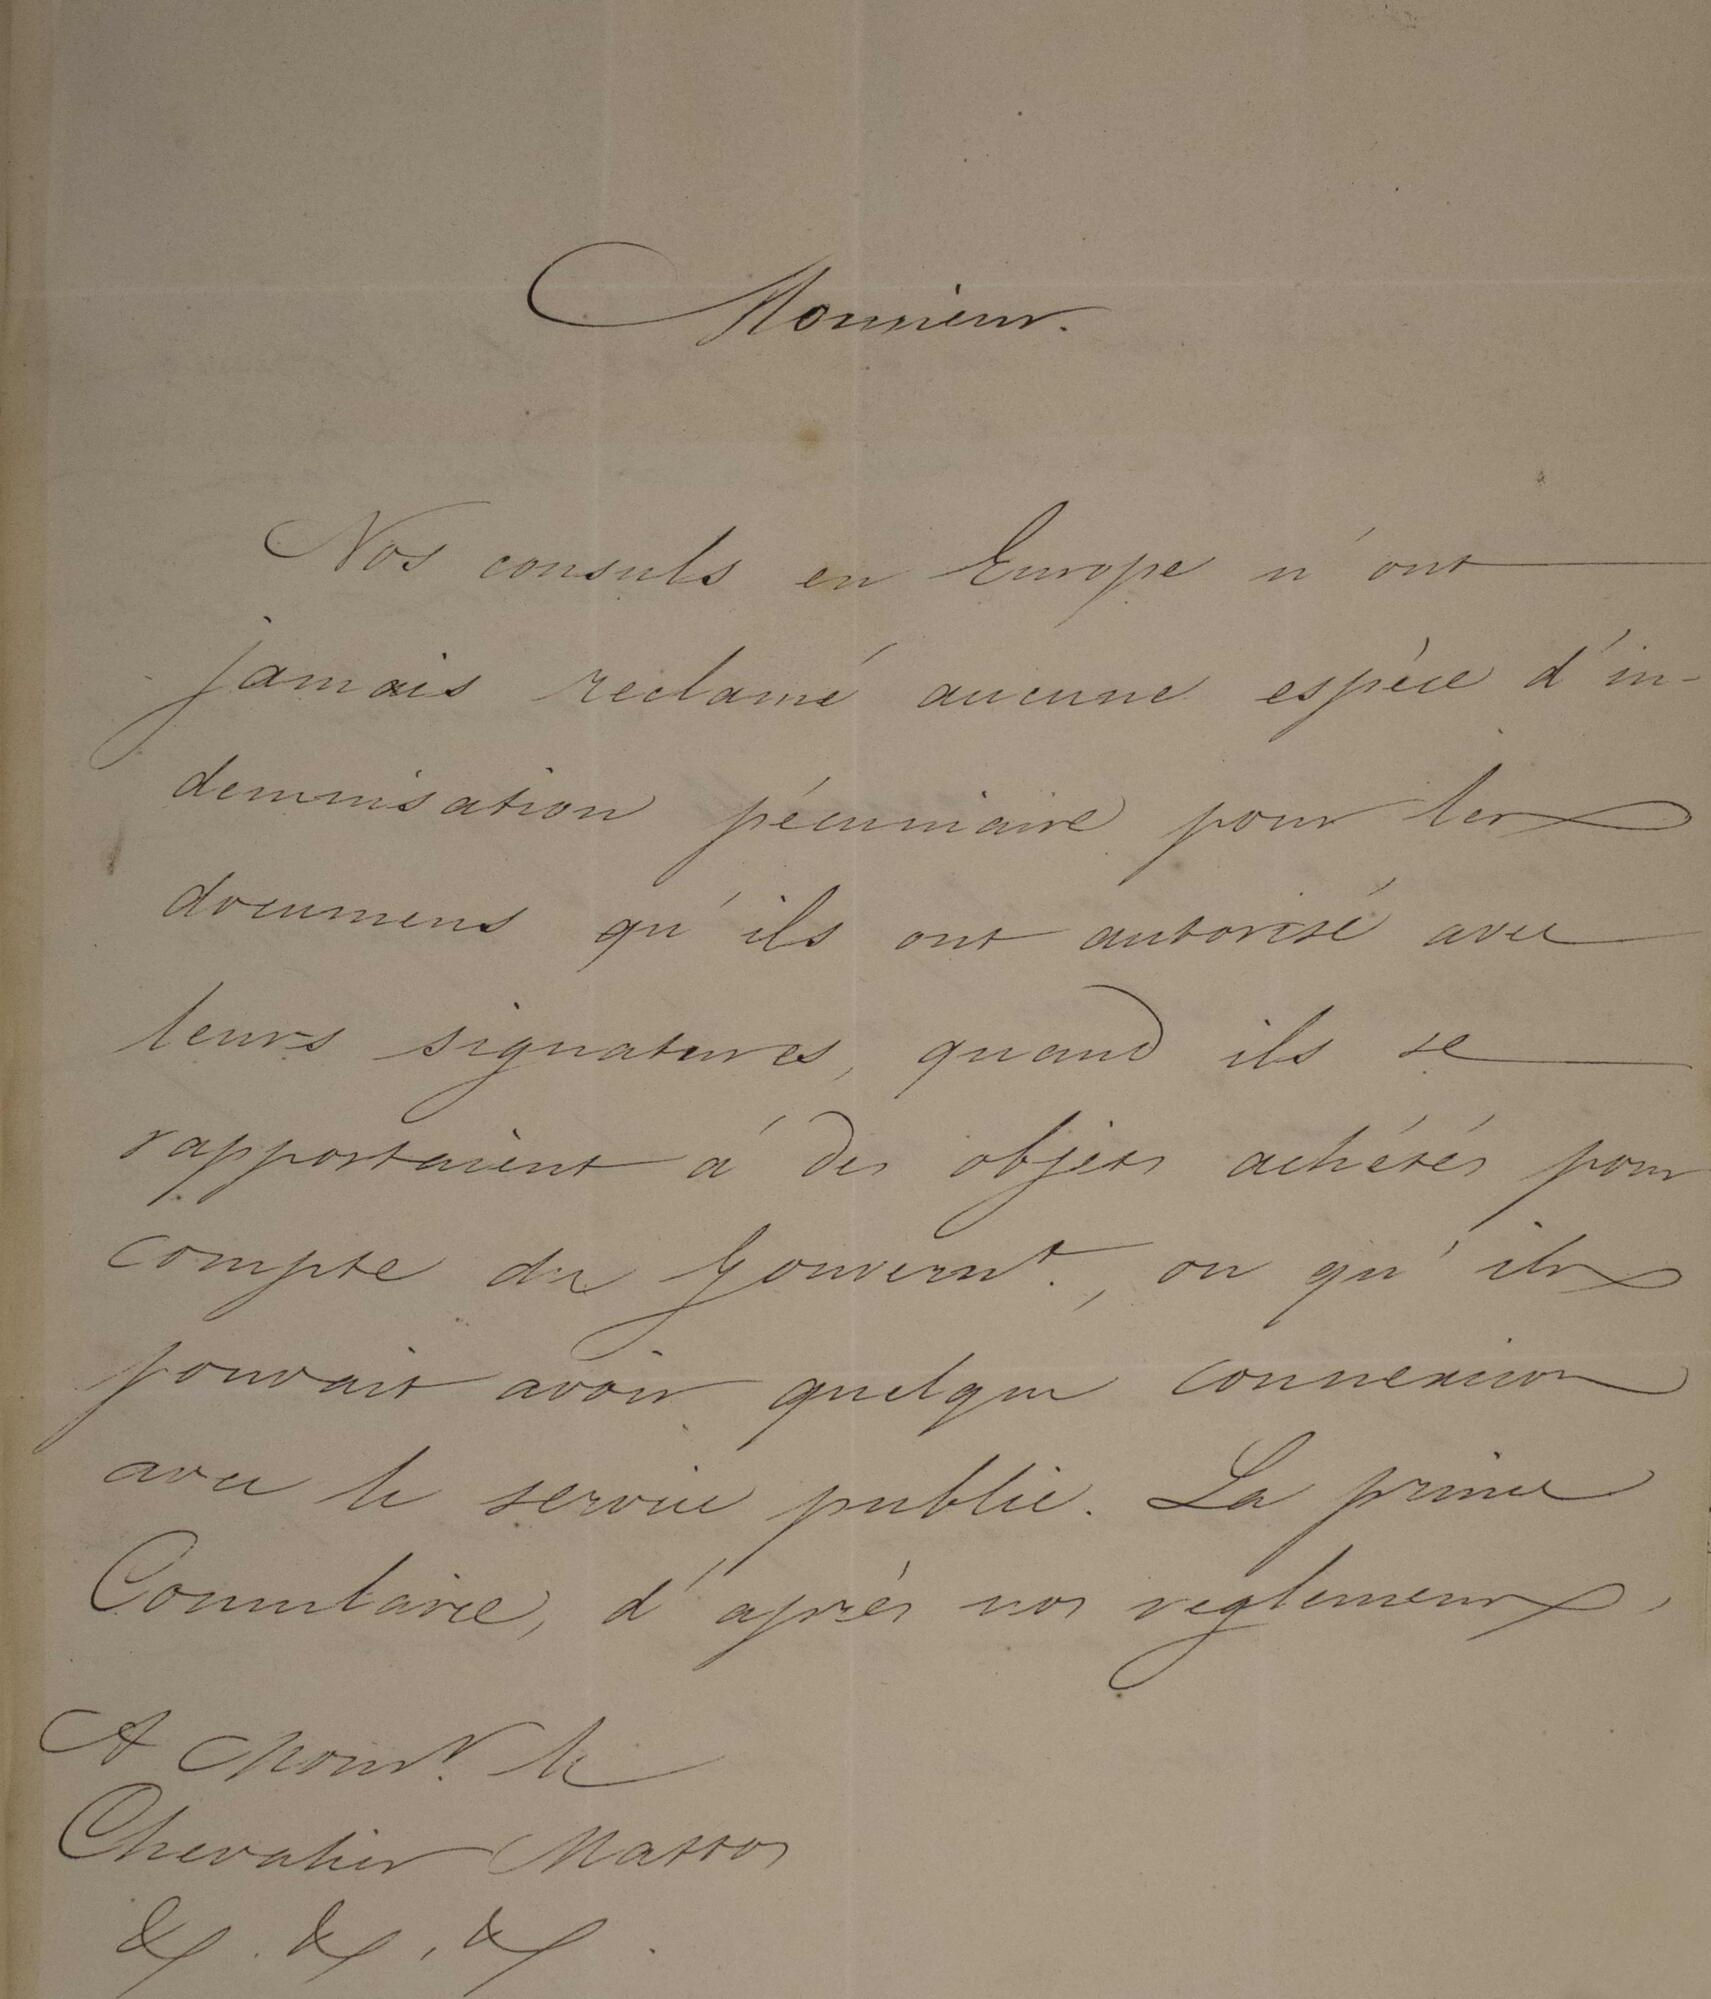 Monsieur.
Nos consuls en Europe n'ont
jamais reclamé aucune espèce d'in-
demnisation pécuniaire pour les
documens qu'ils ont autorisé avec
leurs signatures, quand ils se
rapportaient à des objets achétés pour
compte du Gouvernt., ou qu'ils
pouvait avoir quelque connexion
avec le service public. La prime
Consulaire, d'après nos reglemens,
A Monsr. le
Chevalier Mattos
&. &. &.